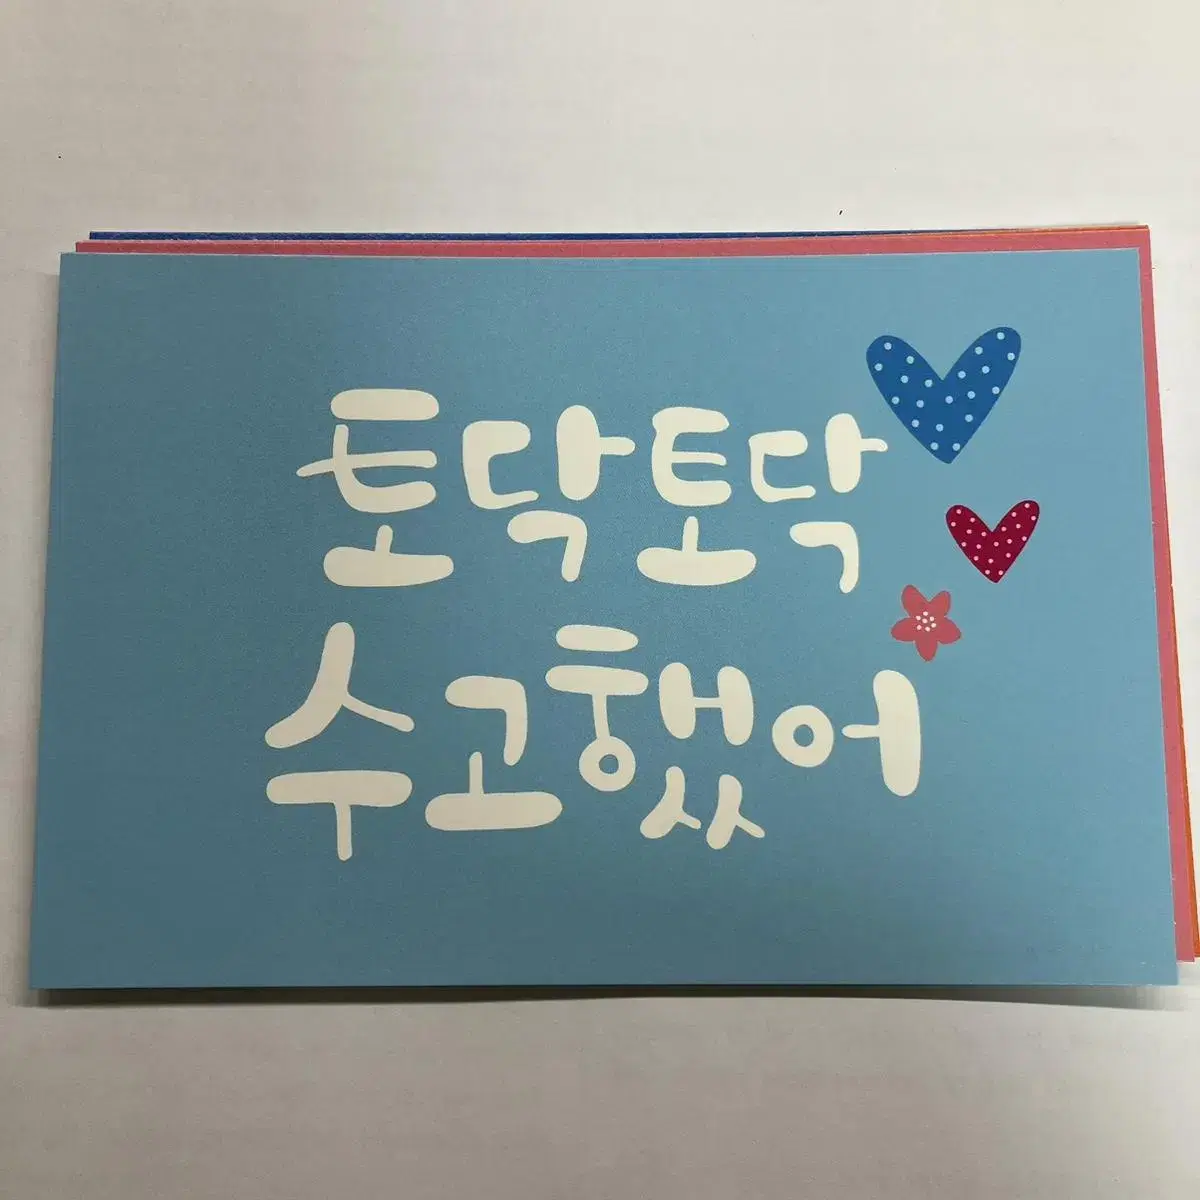 토닥토닥
수고했어